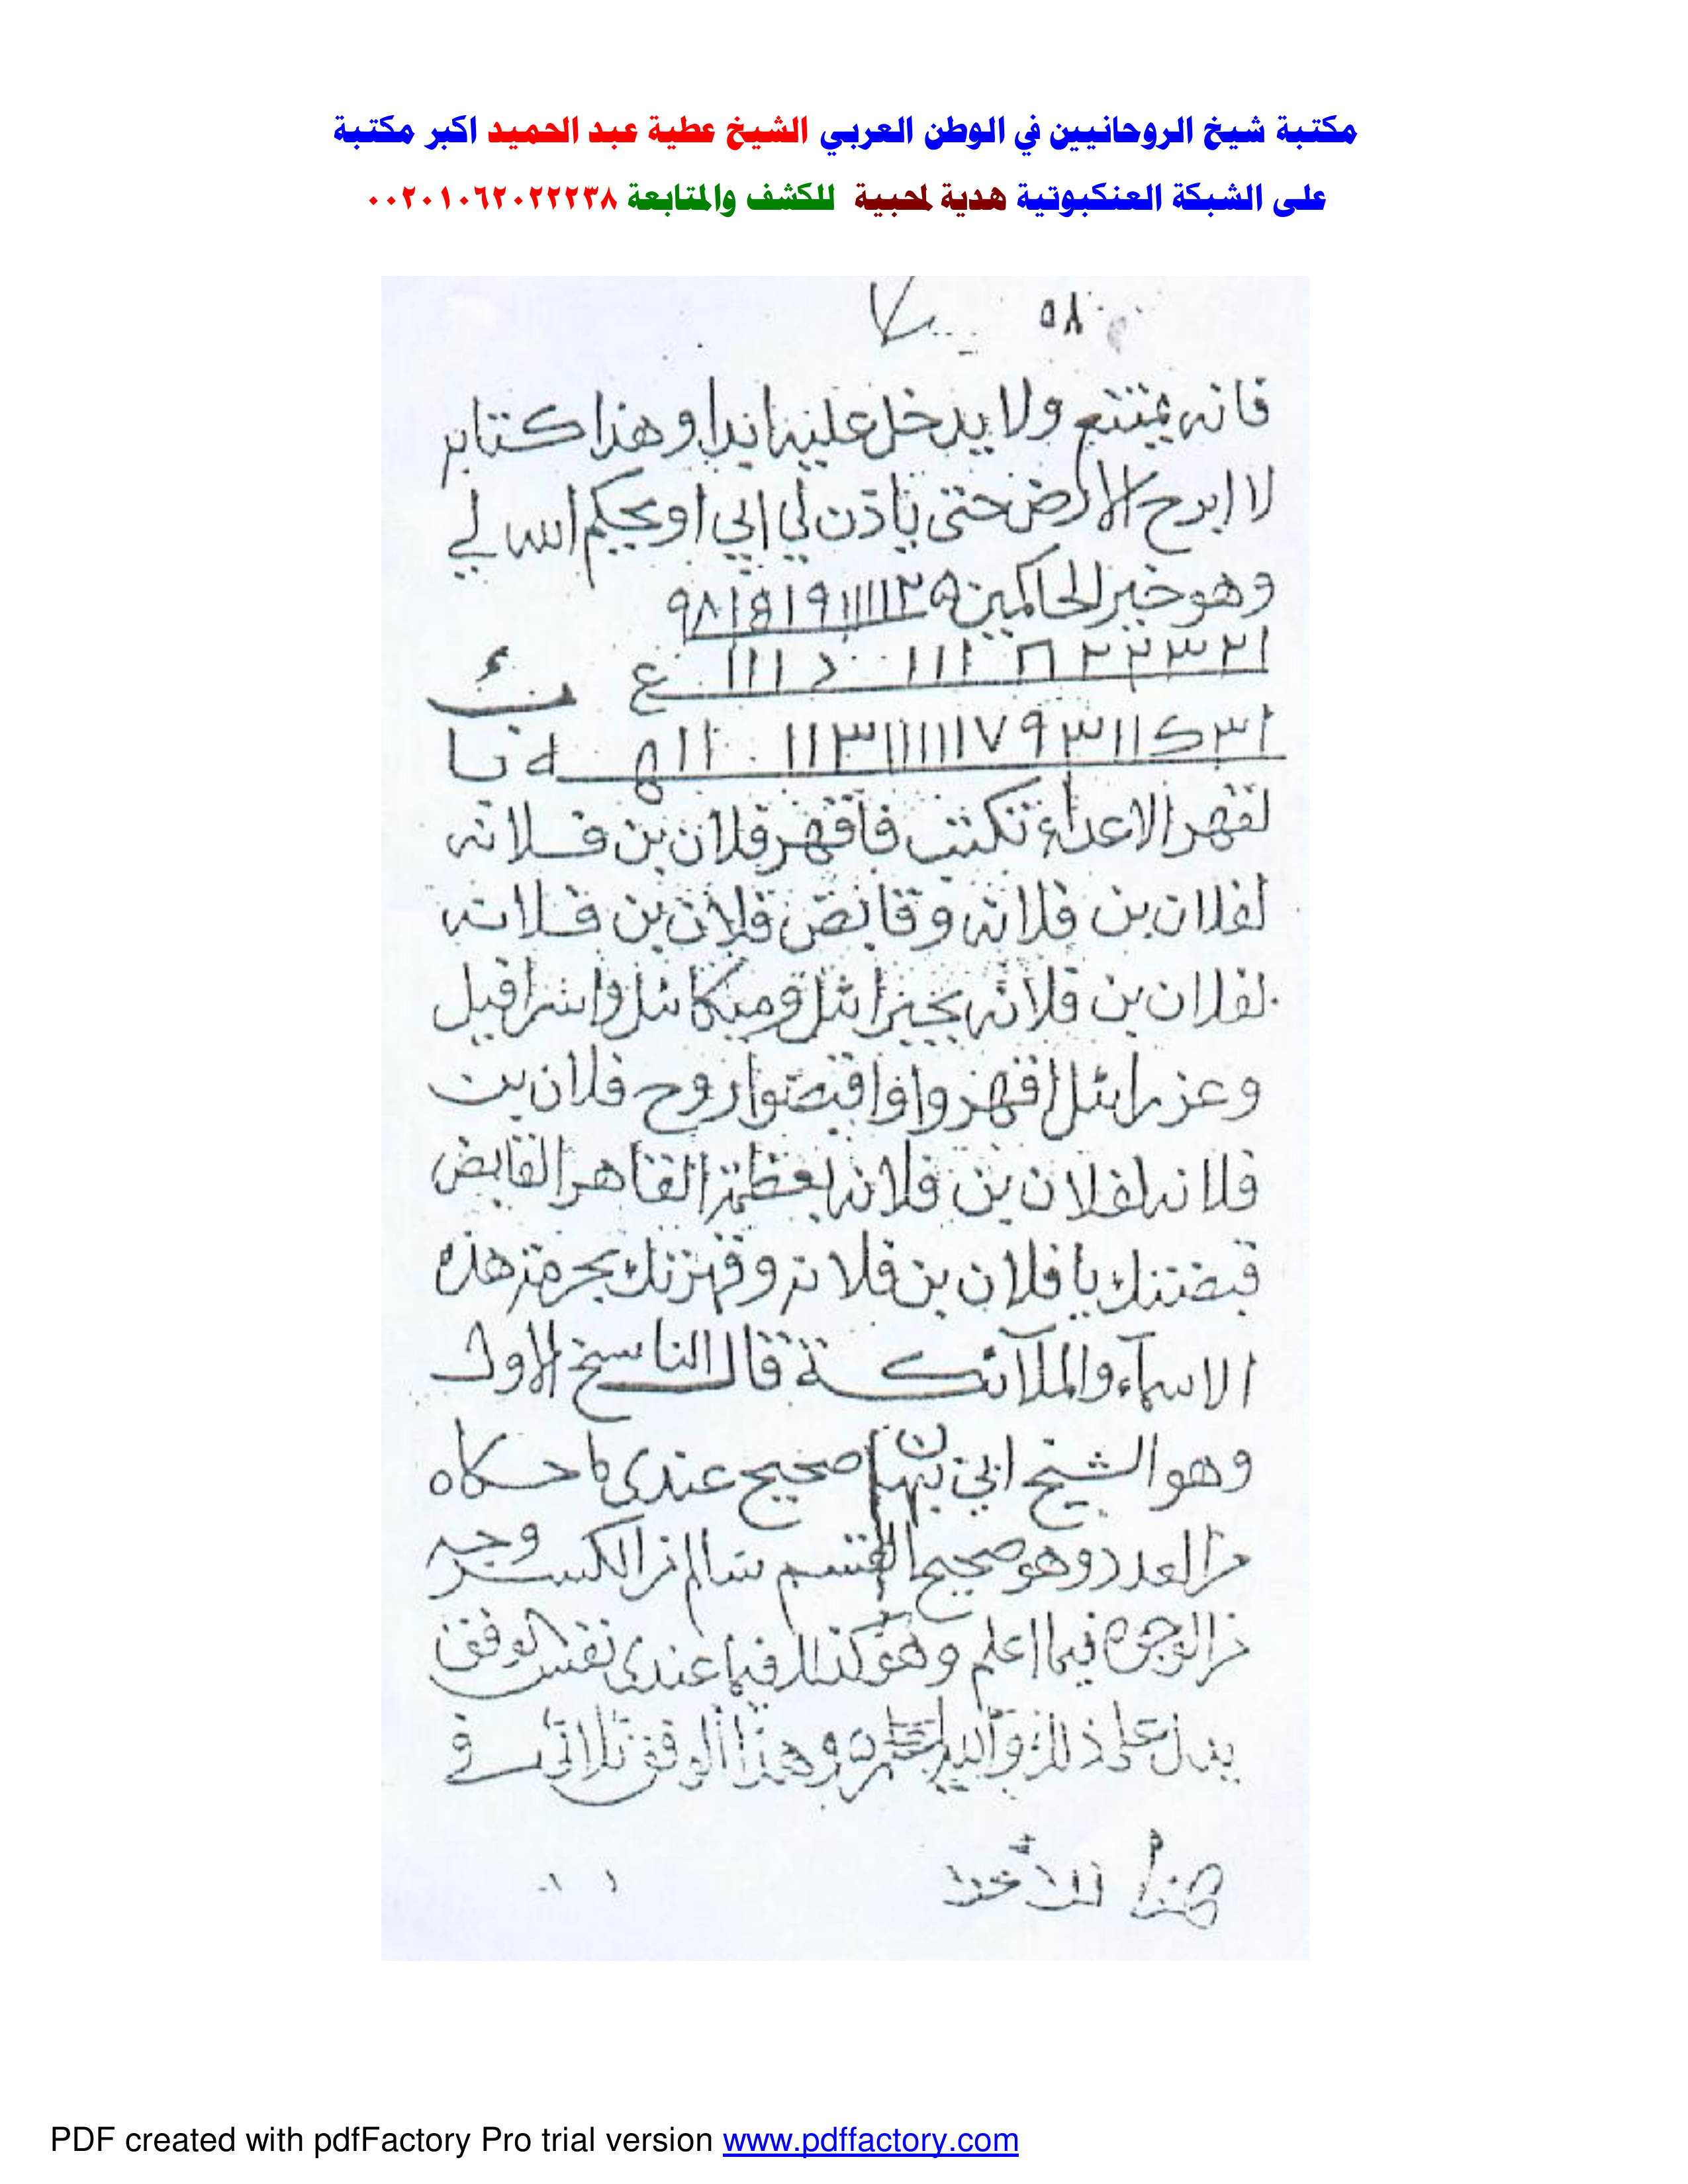 مكتبة شيخ الروحانيين في الوطن العربي الشيخ عطية عبد الحميد اكبر مكتبة
على الشبكة العنكبوتية هدية لمحبية للكشف والمتابعة ٠٠٢٠١٠٦٢٠٢٢٢٣٨
٥٨
فانه يمتنع ولا يدخل عليه ابدا وهذا كتابه
لا ابرح الارض حتى ياذن لي ابي او يحكم الله لي
وهو خير الحاكمين
لقهر الاعداء تكتب فاقهر فلان بن فلانه
لفلان بن فلانه وقابض فلان بن فلانه
لفلان بن فلانه بجبرائل وميكائل واسرافيل
وعزرائل اقهروا واقبضوا روح فلان بن
فلانه لفلان بن فلانه بعظمة القاهر القابض
قبضتك يا فلان بن فلانه وقهرتك بحرمة هذه
الاسماء والملآئكة قال الناسخ الاول
وهو الشيخ ابي نبهان صحيح عندى ما حكاه
من العدد وهو صحيح القسم سالم من الكسر وجه
من الوجوه فيما اعلم وهو كذلك فيما عندى نفس الوفق
يدل على ذلك وهذا الوفق ثلاثي في
هذا
PDF created with pdfFactory Pro trial version www.pdffactory.com